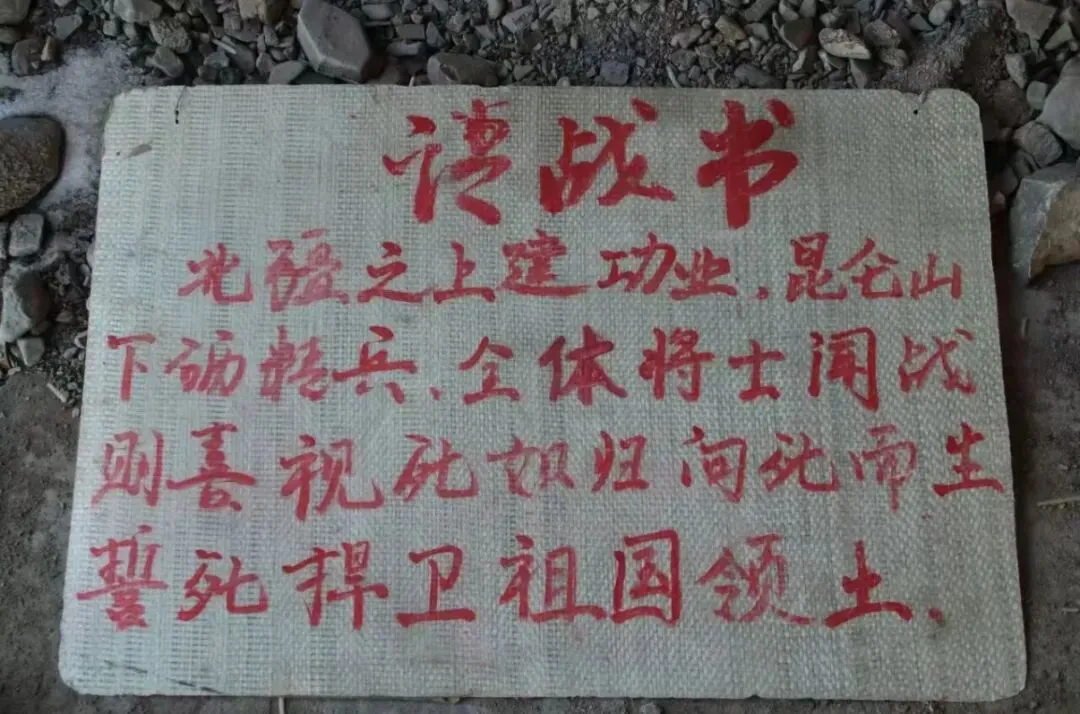 请战书
北疆之上建功业，昆仑山
下砺精兵、全体将士闻战
则喜视死如归向死而生
誓死捍卫祖国领土.